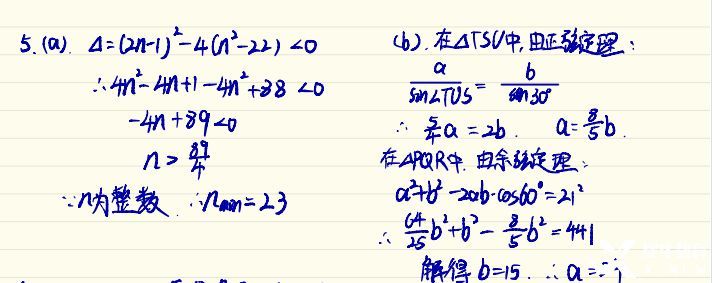 5. (a) Δ=(2n-1)²-4(n²-22)<0
∴4n²-4n+1-4n²+88<0
-4n+89<0
n>89/4
∵n为整数 ∴n_min=23
(b). 在△TSU中,由正弦定理:
a/sin∠TUS = b/sin30°
∴ 5/4 a=2b. a=8/5 b.
在△PQR中.由余弦定理:
a²+b²-2ab·cos60°=21²
∴ 64/25 b²+b²-8/5 b²=441
解得 b=15. ∴a=